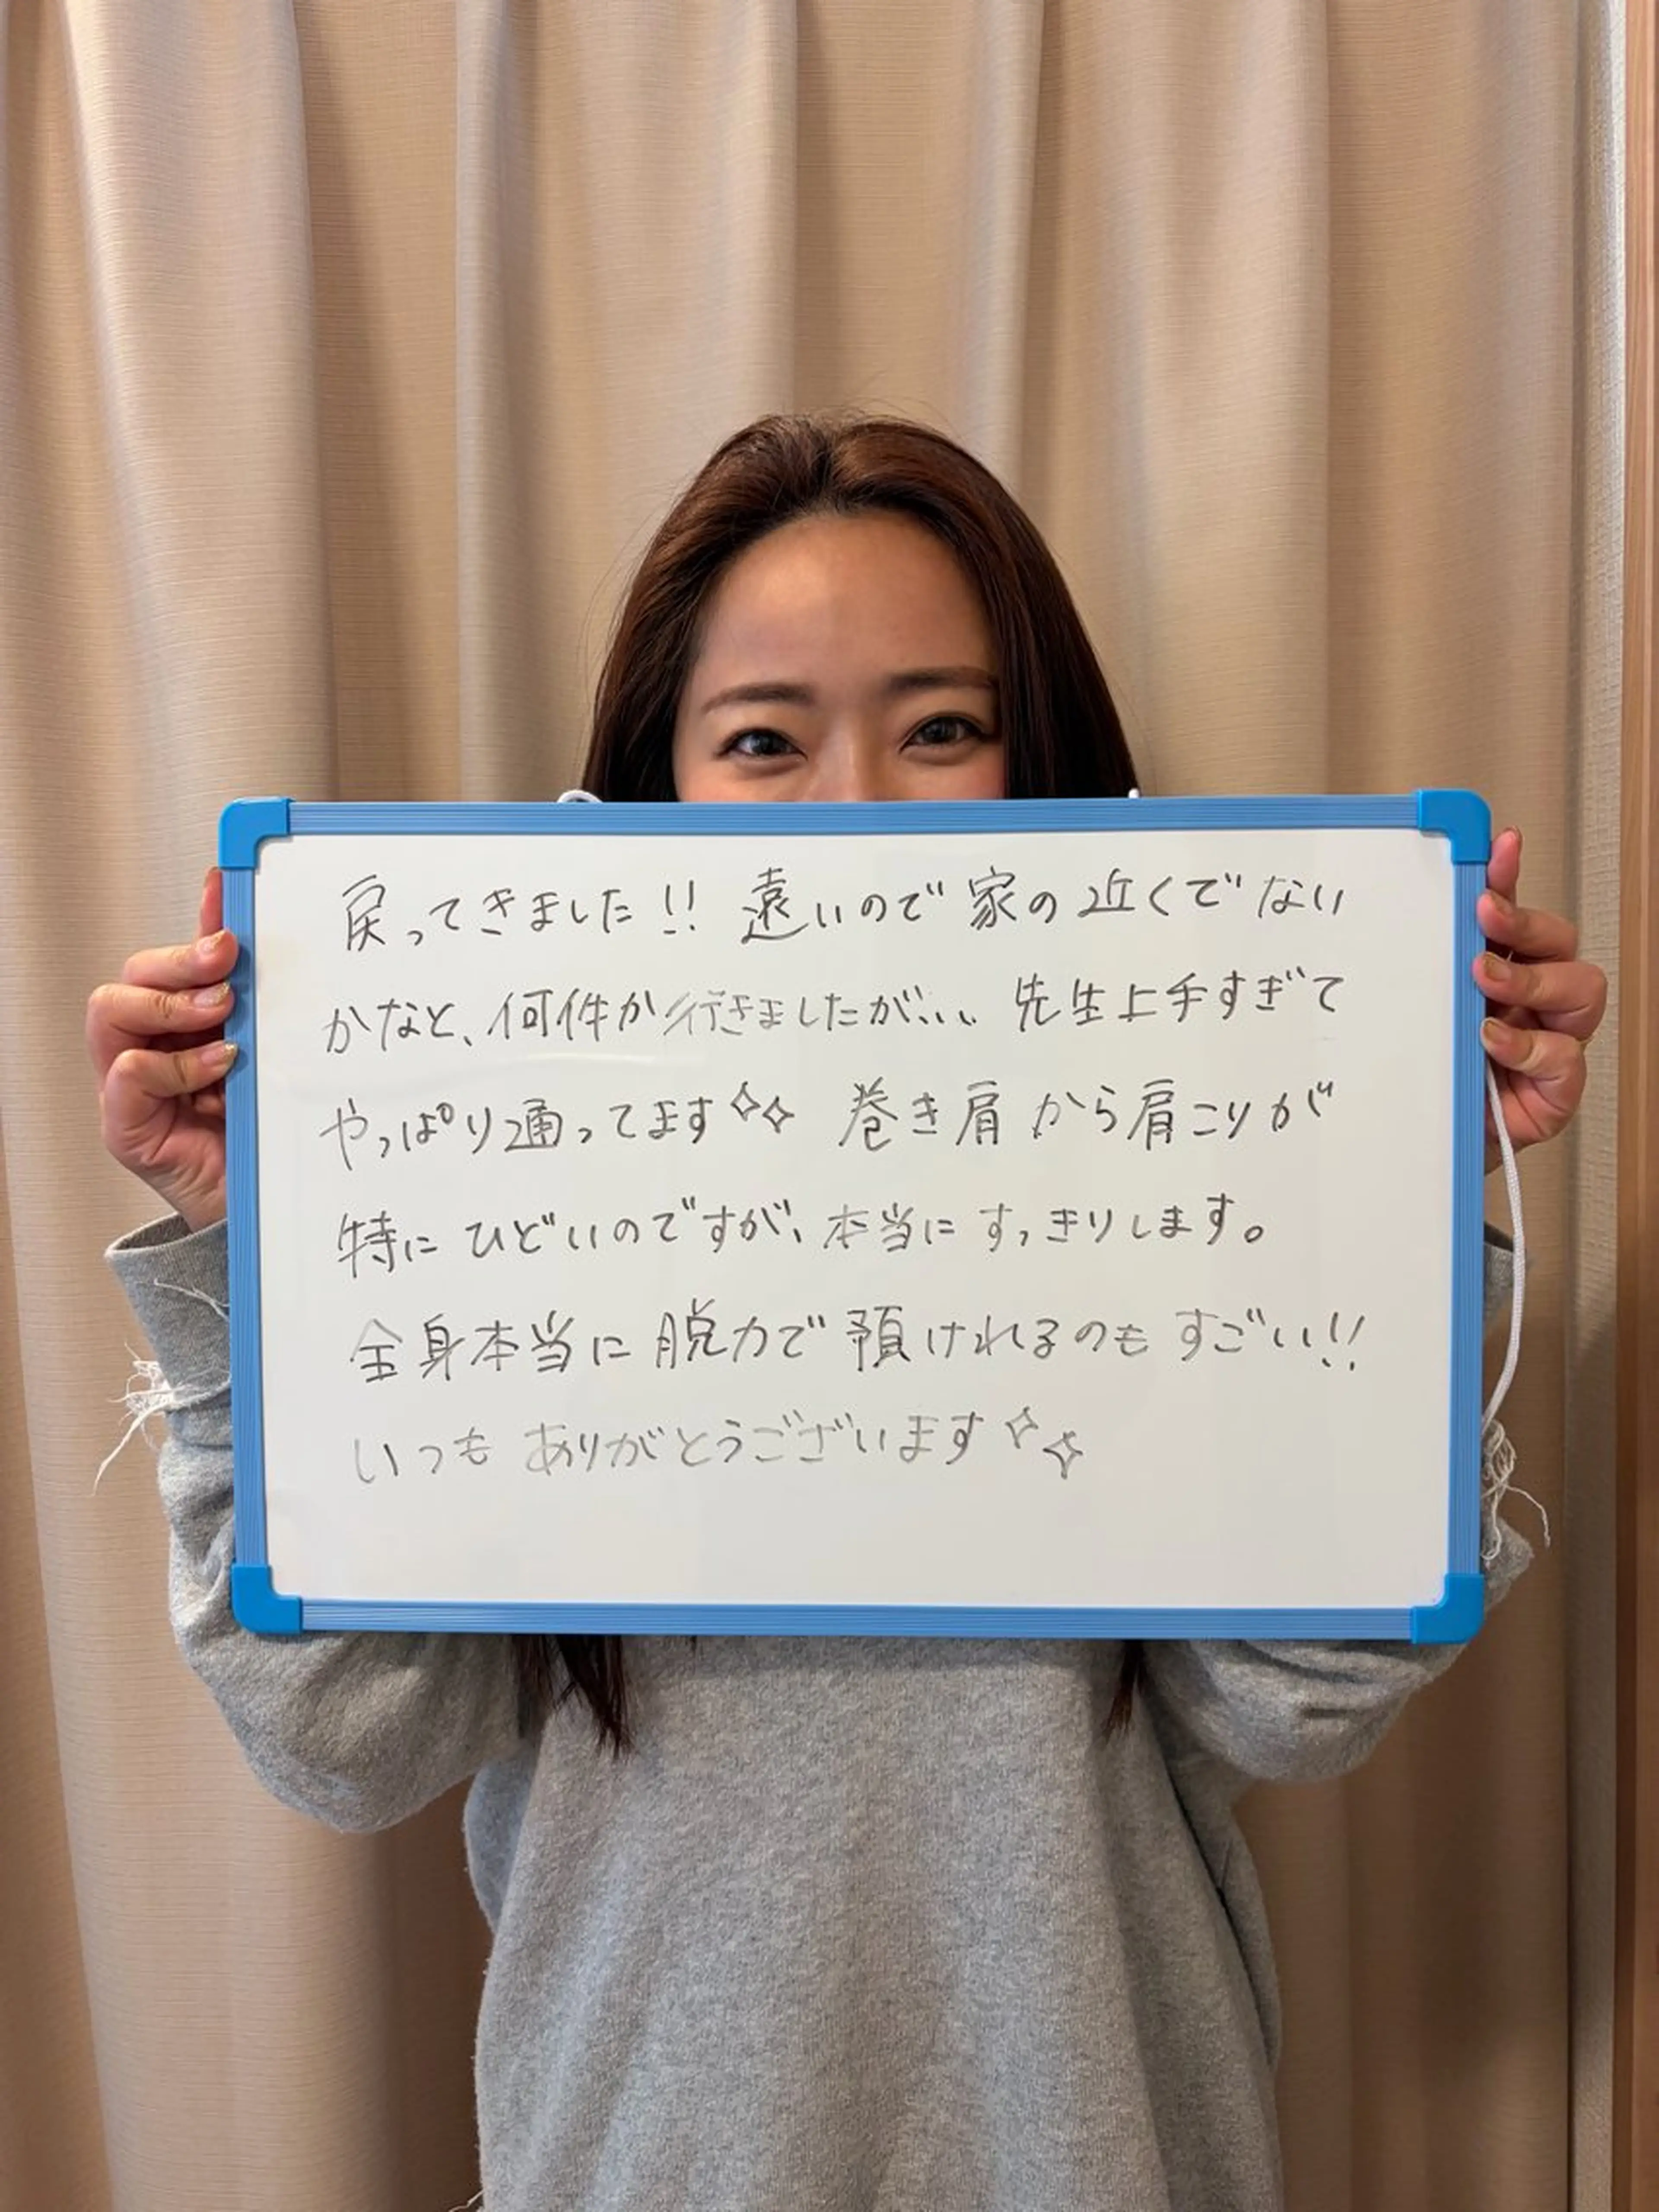 戻ってきました!! 遠いので 家の近くでない
かなと、何件か行きましたが、、、 先生上手すぎて
やっぱり通ってます✧✧ 巻き肩から肩こりが
特にひどいのですが、本当にすっきりします。
全身本当に脱力で預けれるのもすごい!!
いつも ありがとうございます✧✧